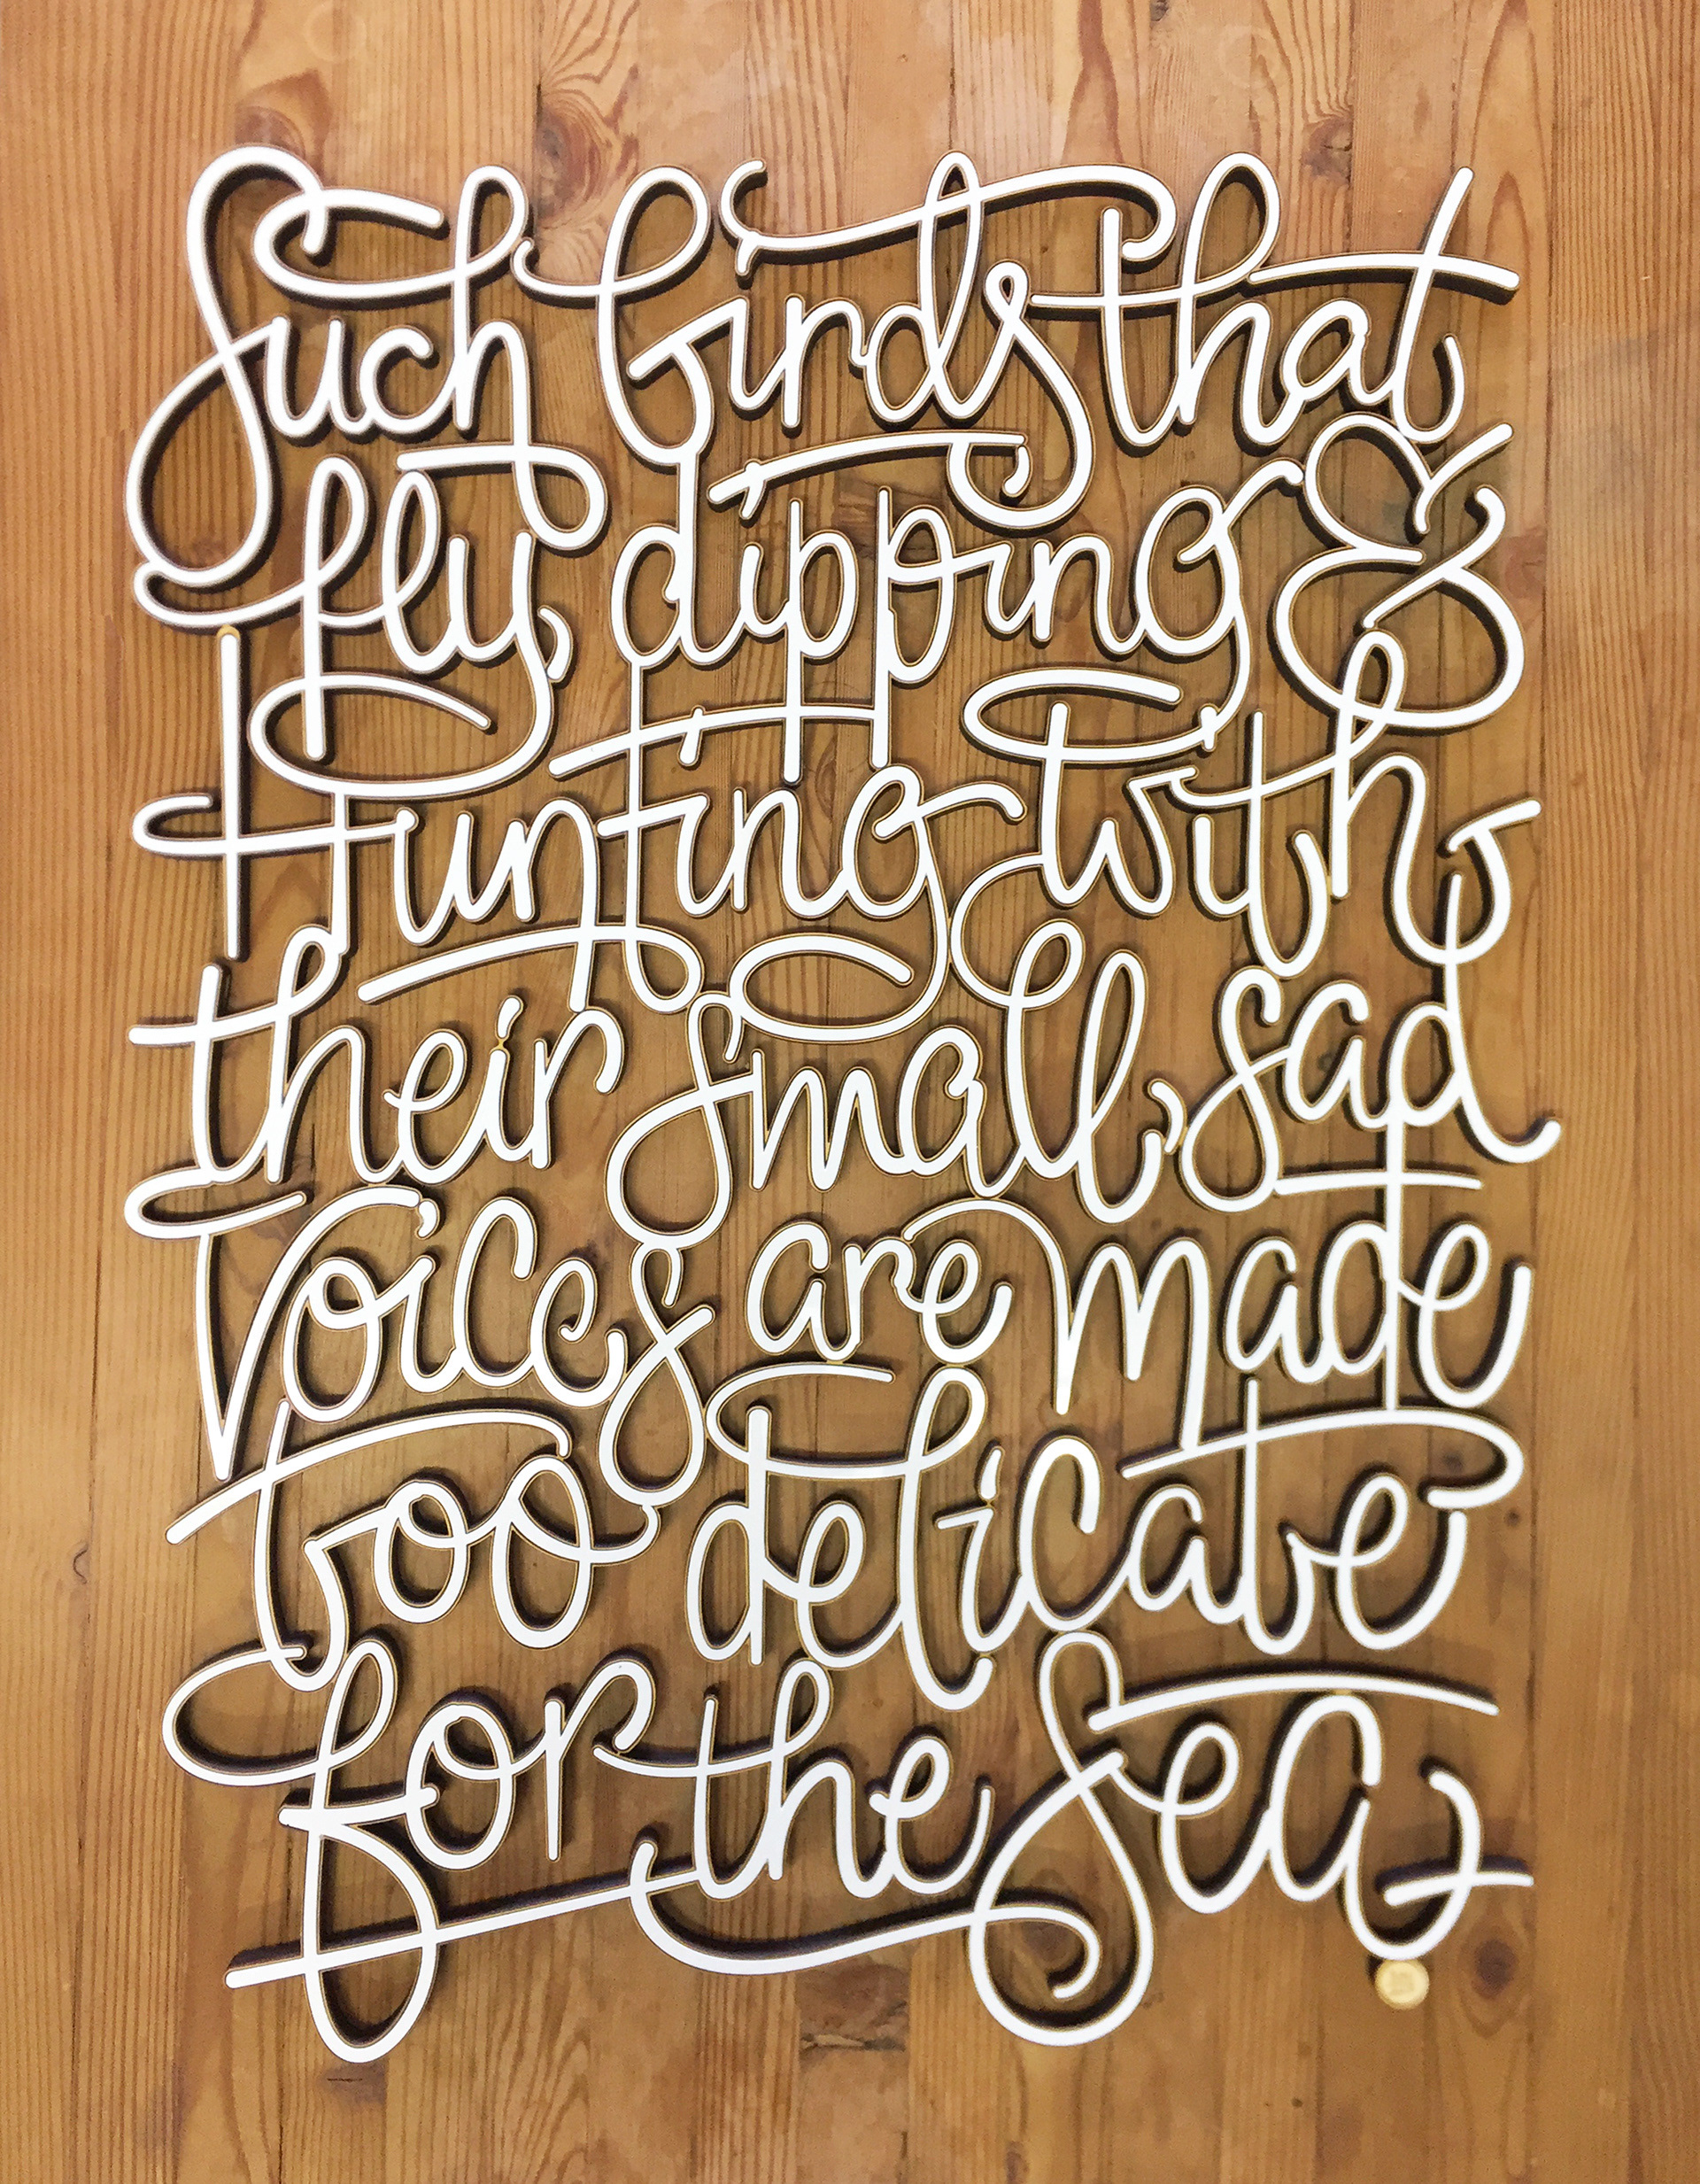 Such birds that
fly, dipping &
Hunting with
their small, sad
Voices are made
too delicate
for the sea